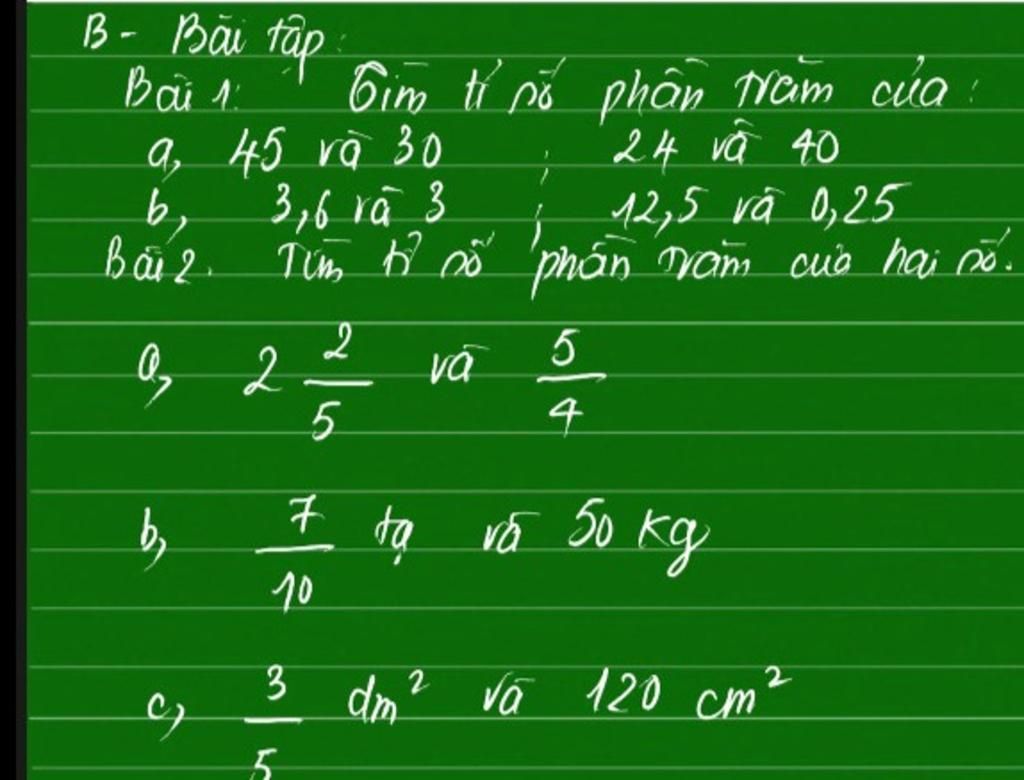 B - Bài tập:
Bài 1: Tìm tỉ số phần trăm của:
a, 45 và 30 ; 24 và 40
b, 3,6 và 3 ; 12,5 và 0,25
Bài 2. Tìm tỉ số phần trăm của hai số.
a, 2 2/5 và 5/4
b, 7/10 tạ và 50 kg
c, 3/5 dm² và 120 cm²